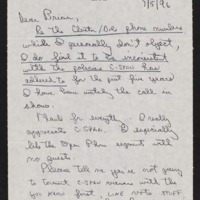 7/5/96
Dear Brian,
Re the Clinton/Dole phone numbers
while I personally don't object,
I do find it to be inconsistent
with the policies C-SPAN has
adhered to for the past five years
I have been watching the call in
shows.
Thanks for everything. I really
appreciate C-SPAN. I especially
like the Open Phone segment with
no guests.
Please tell me you are not going
to connect C-SPAN viewers with the